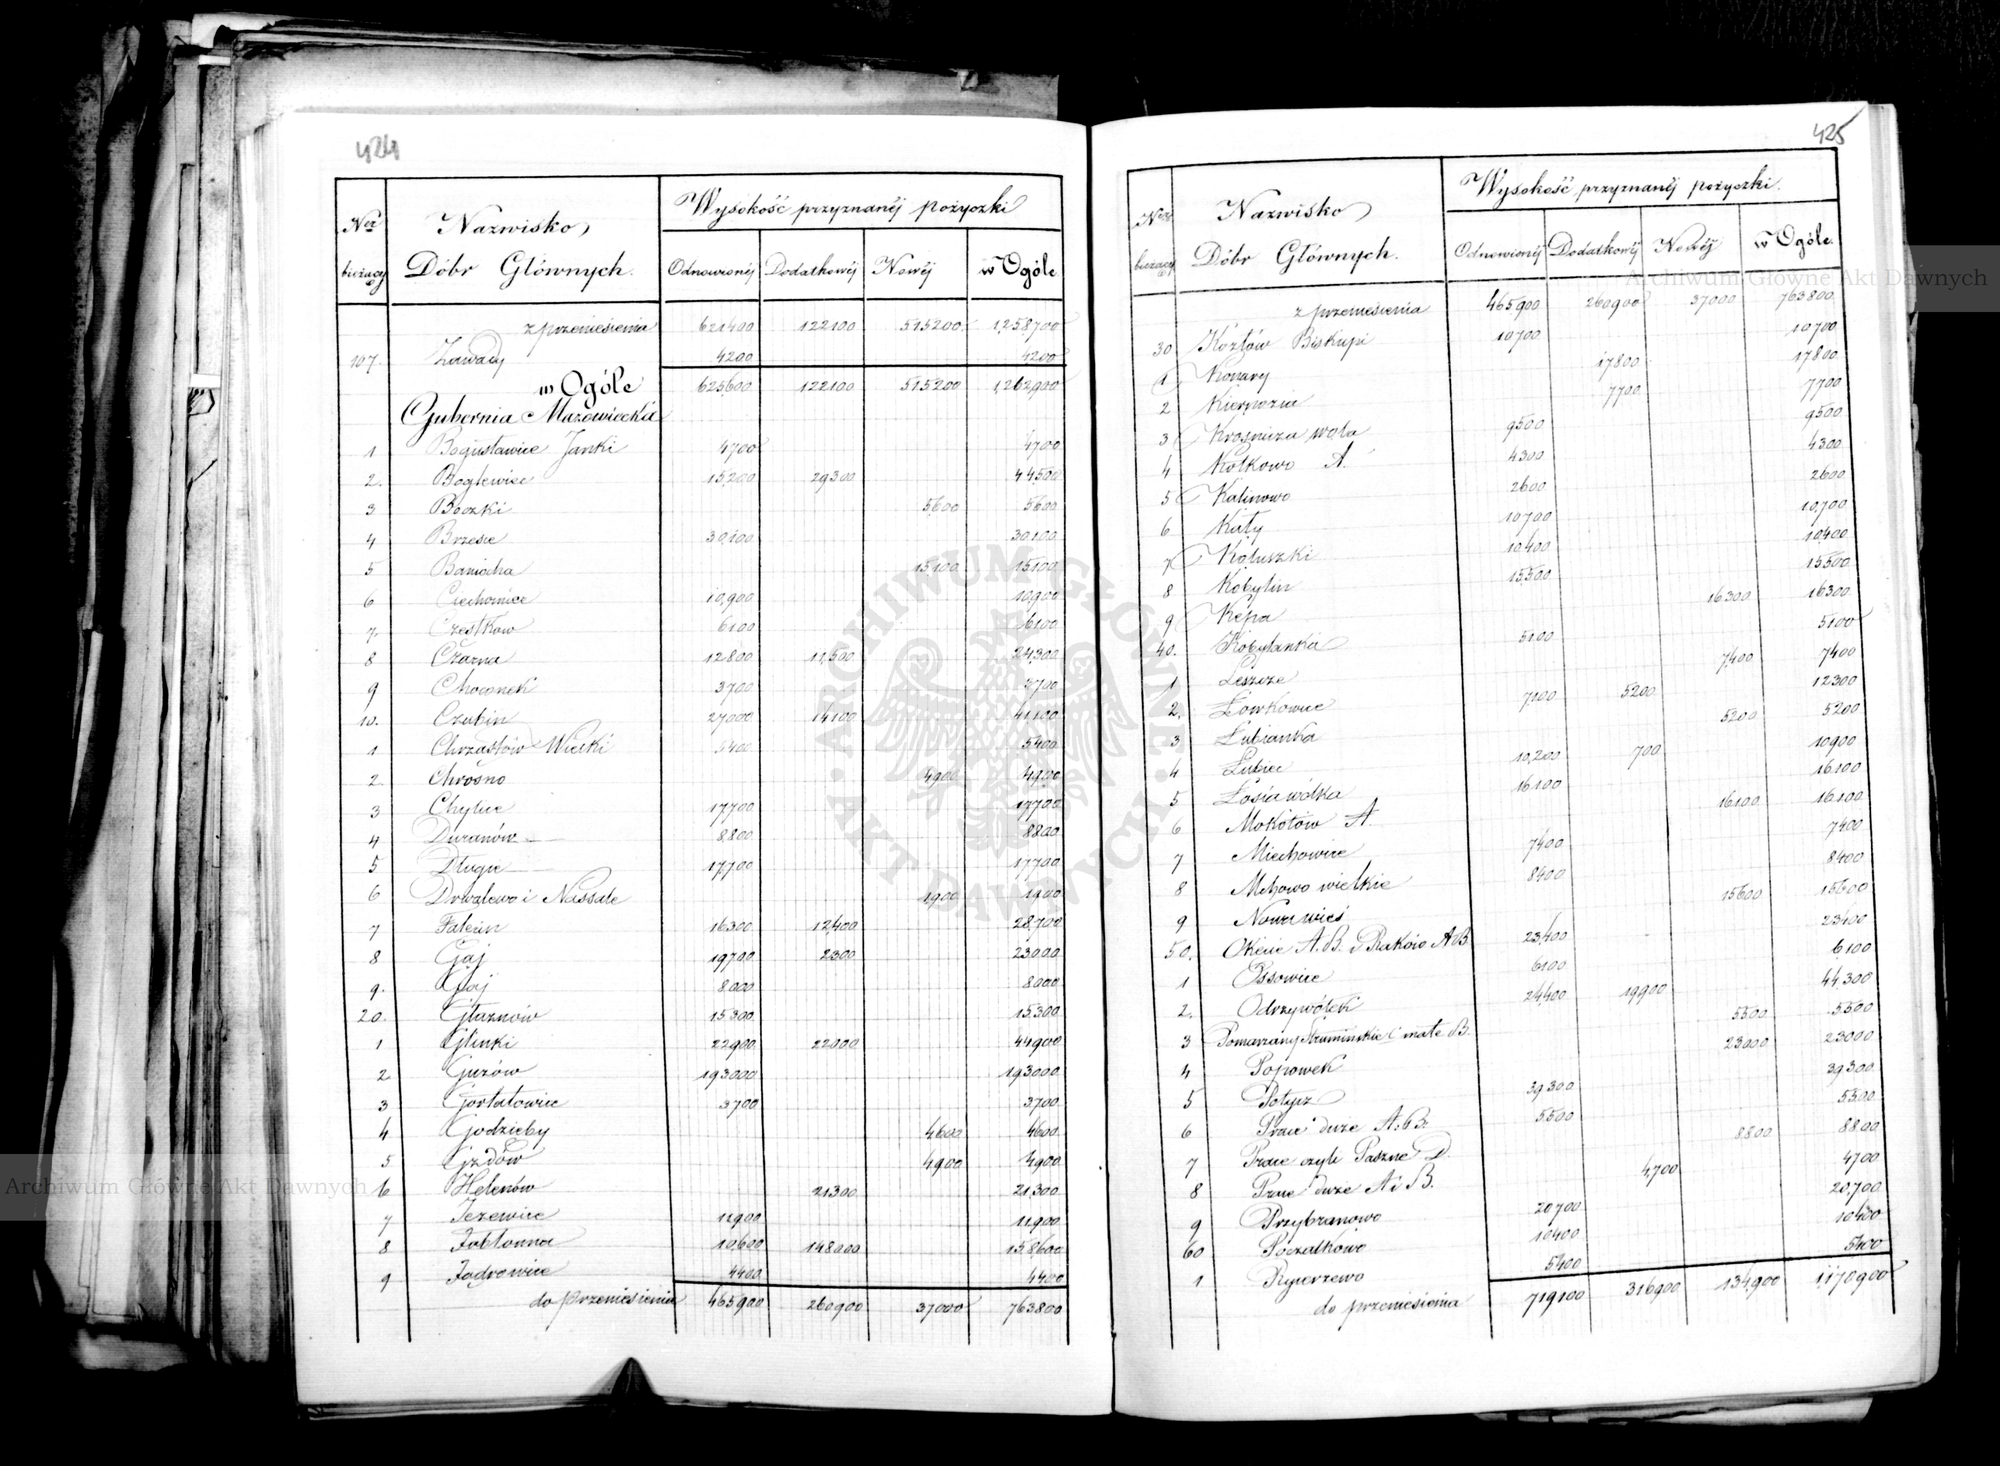 424
Wysokość przyznanéj pożyczki
Ner bieżący Nazwisko Dóbr Głównych. Odnowionéj Dodatkowéj Nowéj w Ogóle
z przeniesienia 621400 122100 515200 1,258700
107. Zawady 4200 4200
w Ogóle 625600 122100 515200 1,262900
Gubernia Mazowiecka
1 Bogusławice Janki 4700 4700
2. Boglewice 15200 29300 44500
3 Boczki 5600 5600
4 Brzescie 30100 30100
5 Baniocha 15100 15100
6 Ciechomice 10,900 10900
7. Czestkow 6100 6100
8 Czarna 12800 11,500 24300
9 Choconek 3700 3700
10. Czubin 27000 14100 41100
1 Chrząstów Wielki 5400 5400
2. Chrosno 4900 4900
3 Chylice 17700 17700
4 Duranów 8800 8800
5 Długie 17700 17700
6 Drwalewo i Nassale 1900 1900
7 Falęcin 16300 12400 28,700
8 Gaj 19700 2300 23000
9. Gaj 8000 8000
20. Głuznów 15300 15300
1 Glinki 22900 22000 44900
2 Guzów 193000 193000
3 Gortatowice 3700 3700
4 Godzięby 4600 4600
5 Gzdów 4900 4900
6 Helenów 21300 21,300
7 Jeżewice 11900 11900
8 Jabłonna 10600 148000 158600
9 Jądrowice 4400 4400
do przeniesienia 465900 260900 37000 763800
425
Wysokość przyznanéj pożyczki.
Ner bieżący Nazwisko Dóbr Głównych. Odnowionéj Dodatkowéj Nowéj w Ogóle
z przeniesienia 465900 260900 37000 763800
30 Kozłów Biskupi 10700 10700
1 Konary 17800 17800
2 Kiernozia 7700 7700
3 Krośniza wola 9500 9500
4 Kołkowo A. 4300 4300
5 Kalinowo 2600 2600
6 Kąty 10700 10,700
7 Koluszki 10400 10400
8 Kobylin 15500 15500
9 Kępa 16300 16300
40. Kobylanka 5100 5100
1 Leszcze 7400 7400
2. Łowkowice 7100 5200 12300
3 Łubianka 5200 5200
4 Lubiec 10,200 700 10900
5 Łosia wólka 16100 16100
6 Mokotów A. 16100 16100
7 Miechowice 7400 7400
8 Mchowo wielkie 8400 8400
9 Nowawieś 15600 15600
50. Okecie A.B. i Raków A.B. 23,400 23400
1 Ossowice 6100 6100
2. Odrzywółek 24400 19900 44,300
3 Pomarzany Strumińskie i małe B. 5500 5500
4 Popowek 23000 23000
5 Potycz 39300 39300
6 Prace duże A. i B. 5500 5500
7 Prace czyli Paszne D. 8800 8800
8 Prace duże A i B. 4,700 4700
9 Przybranowo 20700 20,700
60 Początkowo 10400 10400
1 Rycerzewo 5400 5400
do przeniesienia 719100 316900 134,900 1,170900
ARCHIWUM GŁÓWNE AKT DAWNYCH
Archiwum Główne Akt Dawnych
Archiwum Główne Akt Dawnych